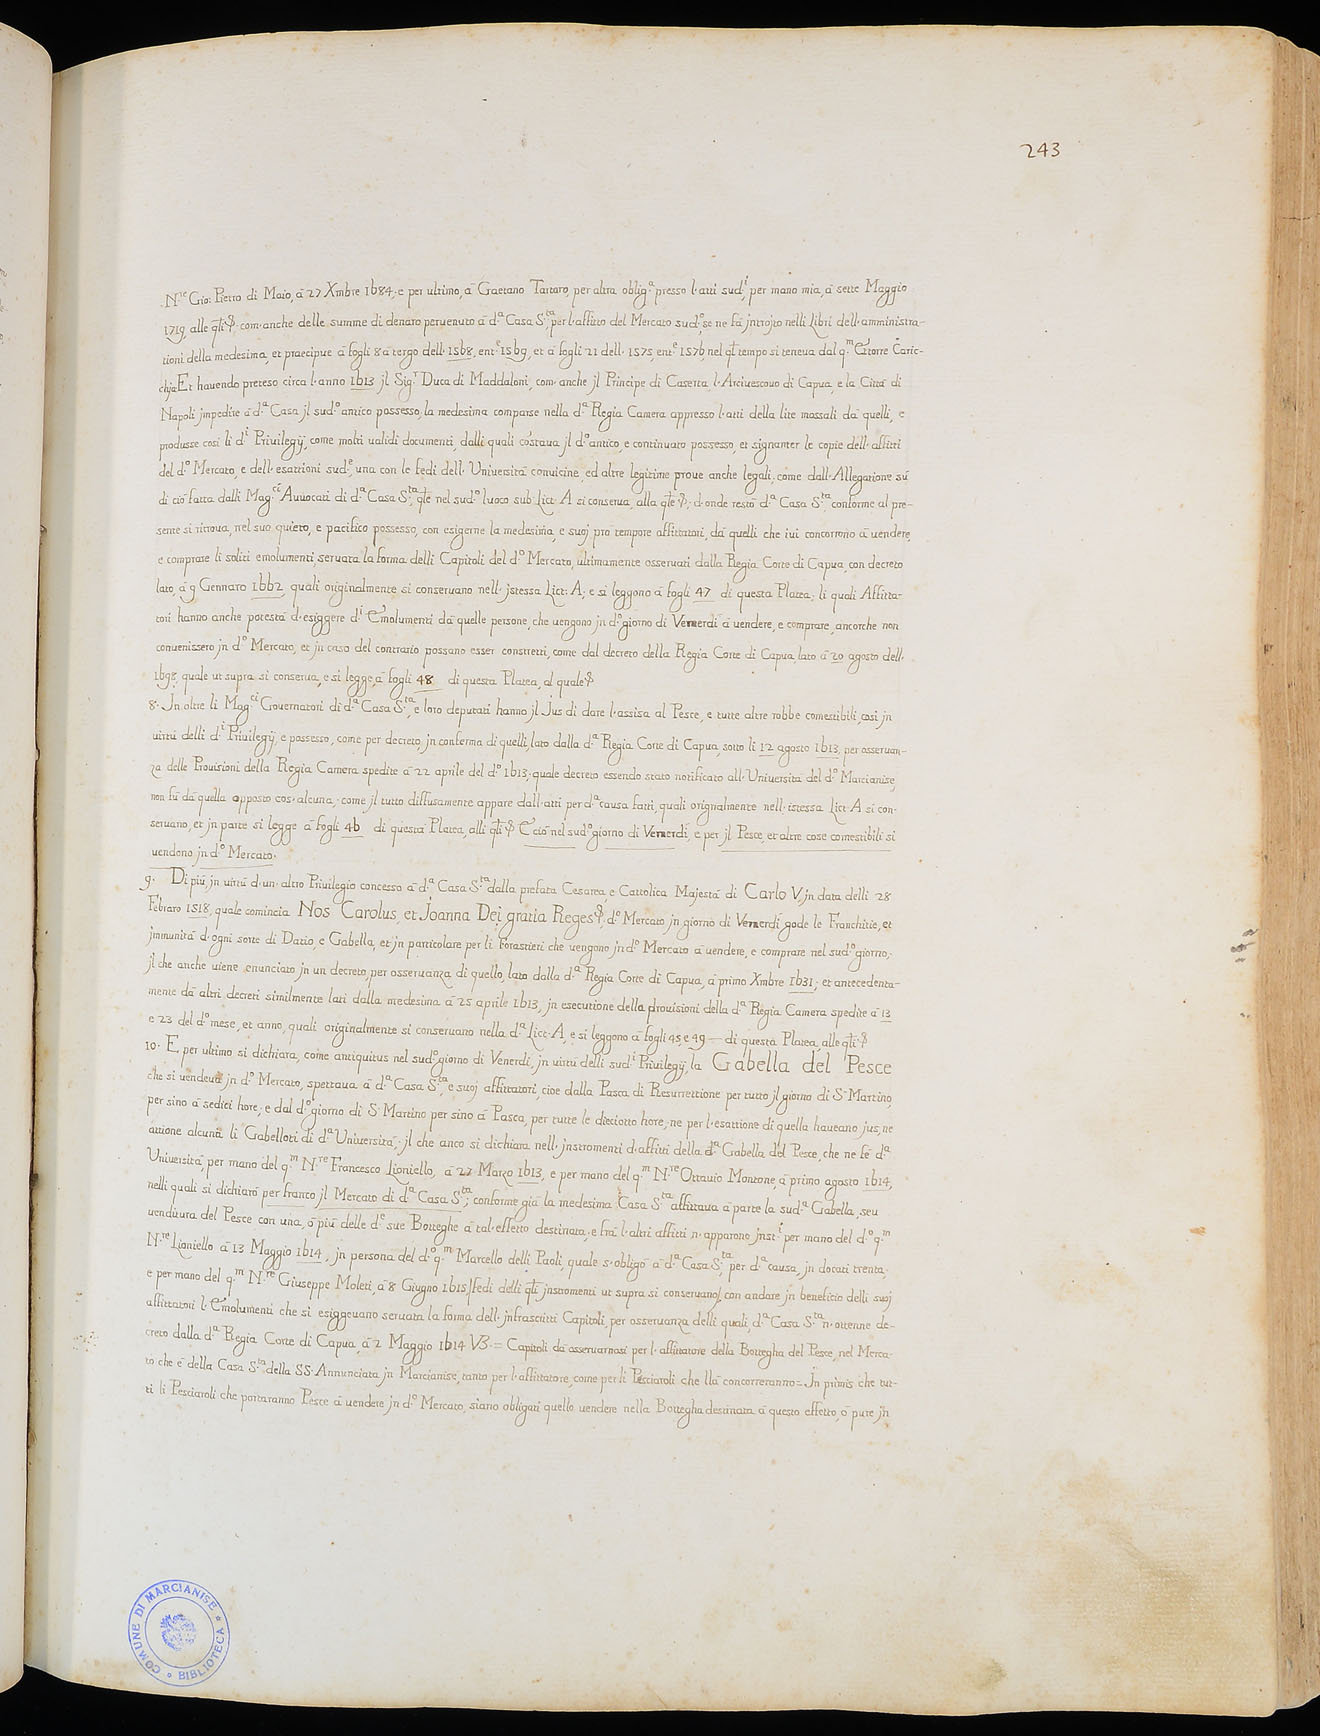 243
N.re Gio: Pietro di Maio, à 27 Xmbre 1684; e per ultimo, à Gaetano Tartaro, per altra oblig.a presso l'atti sud.i, per mano mia, à sette Maggio
1719, alle qli &. com'anche delle summe di denaro peruenuto à d.a Casa S.ta, per l'affitto del Mercato sud.o, se ne fà jntrojto nelli Libri dell'amministra-
tioni della medesima, et praecipue à fogli 8 à tergo dell' 1568, ent.e 1569, et à fogli 21 dell' 1575, ent.e 1576, nel ql tempo si teneua dal q.m Ettorre Caric-
chja. Et hauendo preteso circa l'anno 1613 jl Sig.r Duca di Maddaloni, com'anche jl Principe di Caserta, l'Arciuescouo di Capua, e la Città di
Napoli jmpedire à d.a Casa jl sud.o antico possesso, la medesima comparse nella d.a Regia Camera appresso l'atti della lite mossali da quelli, e
produsse così li d.i Priuilegij, come molti ualidi documenti, dalli quali costaua jl d.o antico, e continuato possesso, et signanter le copie dell'affitti
del d.o Mercato, e dell'esattioni sud.e, una con le fedi dell'Università conuicine, ed altre legitime proue anche legali, come dall'Allegatione sù
di ciò fatta dalli Mag.ci Auuocati di d.a Casa S.ta, qle nel sud.o luoco sub Litt: A si conserua, alla qle &; d'onde restò d.a Casa S.ta, conforme al pre-
sente si ritroua, nel suo quieto, e pacifico possesso, con esigerne la medesima, e suoj pro tempore affittatori, dà quelli che iui concorrono à uendere,
e comprare li soliti emolumenti, seruata la forma delli Capitoli del d.o Mercato, ultimamente osseruati dalla Regia Corte di Capua, con decreto
lato à 9 Gennaro 1662, quali originalmente si conseruano nell'jstessa Litt: A; e si leggono à fogli 47 di questa Platea; li quali Affitta-
tori hanno anche potestà d'esiggere d.i Emolumenti dà quelle persone, che uengono jn d.o giorno di Venerdì à uendere, e comprare, ancorche non
conuenissero jn d.o Mercato, et jn caso del contrario possano esser constretti, come dal decreto della Regia Corte di Capua, lato à 20 agosto dell'
1698, quale ut supra si conserua, e si legge à fogli 48 di questa Platea, al quale &
8. Jn oltre li Mag.ci Gouernatori di d.a Casa S.ta, e loro deputati hanno jl Jus di dare l'assisa al Pesce, e tutte altre robbe comestibili, così jn
uirtù delli d.i Priuilegij, e possesso, come per decreto, jn conferma di quelli, lato dalla d.a Regia Corte di Capua, sotto li 12 agosto 1613, per osseruan-
za delle Prouisioni della Regia Camera spedite à 22 aprile del d.o 1613; quale decreto essendo stato notificato all'Università del d.o Marcianise,
non fù dà quella opposto cos'alcuna, come jl tutto diffusamente appare dall'atti per d.a causa fatti, quali originalmente nell'istessa Litt. A si con-
seruano, et jn parte si legge à fogli 46 di questa Platea, alli qli & E ciò nel sud.o giorno di Venerdì, e per jl Pesce, et altre cose comestibili si
uendono jn d.o Mercato.
9. Di più, jn uirtù d'un'altro Priuilegio concesso à d.a Casa S.ta dalla prefata Cesarea, e Cattolica Majestà di Carlo V, jn data delli 28
Febraro 1518, quale comincia Nos Carolus, et Joanna Dei gratia Reges &, d.o Mercato, jn giorno di Venerdì gode le Franchitie, et
jmmunità d'ogni sorte di Datio, e Gabella, et jn particolare per li Forastieri che uengono jn d.o Mercato à uendere, e comprare nel sud.o giorno,
jl che anche uiene enunciato jn un decreto, per osseruanza di quello, lato dalla d.a Regia Corte di Capua, à primo Xmbre 1631; et antecedenta-
mente dà altri decreti similmente lati dalla medesima à 25 aprile 1613, jn esecutione della prouisioni della d.a Regia Camera spedite à 13
e 23 del d.o mese, et anno, quali originalmente si conseruano nella d.a Litt. A, e si leggono à fogli 45, e 49 — di questa Platea, alle qli &
10. E per ultimo si dichiara, come antiquitus nel sud.o giorno di Venerdì, jn uirtù delli sud.i Priuilegij, la Gabella del Pesce
che si uendeua jn d.o Mercato, spettaua à d.a Casa S.ta, e suoj affittatori, cioe dalla Pasca di Resurrettione per tutto jl giorno di S. Martino,
per sino à sedici hore; e dal d.o giorno di S. Martino per sino à Pasca, per tutte le dieciotto hore, ne per l'esattione di quella haueano jus, ne
attione alcuna li Gabelloti di d.a Università; jl che anco si dichiara nell'jnstromenti d'affitti della d.a Gabella del Pesce, che ne fè d.a
Università, per mano del q.m N.re Francesco Lioniello, à 27 Marzo 1613, e per mano del q.m N.re Ottauio Montone, à primo agosto 1614,
nelli quali si dichiarò per franco jl Mercato di d.a Casa S.ta; conforme già la medesima Casa S.ta affittaua à parte la sud.a Gabella, seu
uenditura del Pesce con una, ò più delle d.e sue Botteghe à tal'effetto destinata, e frà l'altri affitti n'apparono jnst.i per mano del d.o q.m
N.re Lioniello à 13 Maggio 1614, jn persona del d.o q.m Marcello delli Paoli, quale s'obligò à d.a Casa S.ta, per d.a causa, jn docati trenta,
e per mano del q.m N.re Giuseppe Moleti, à 8 Giugno 1615 / fedi delli qli jnstromenti ut supra si conseruano / con andare jn beneficio delli suoj
affittatori l'Emolumenti che si esiggeuano seruata la forma dell'jnfrascritti Capitoli, per osseruanza delli quali, d.a Casa S.ta n'ottenne de-
creto dalla d.a Regia Corte di Capua, à 2 Maggio 1614 VB. = Capitoli dà osseruarnosi per l'affittatore della Bottegha del Pesce, nel Merca-
to che è della Casa S.ta della SS. Annunciata jn Marcianise, tanto per l'affittatore, come per li Pesciaroli che llà concorreranno = Jn primis che tut-
ti li Pesciaroli che portaranno Pesce à uendere jn d.o Mercato, siano obligati quello uendere nella Bottegha destinata à questo effetto, ò pure jn
COMUNE DI MARCIANISE * BIBLIOTECA *